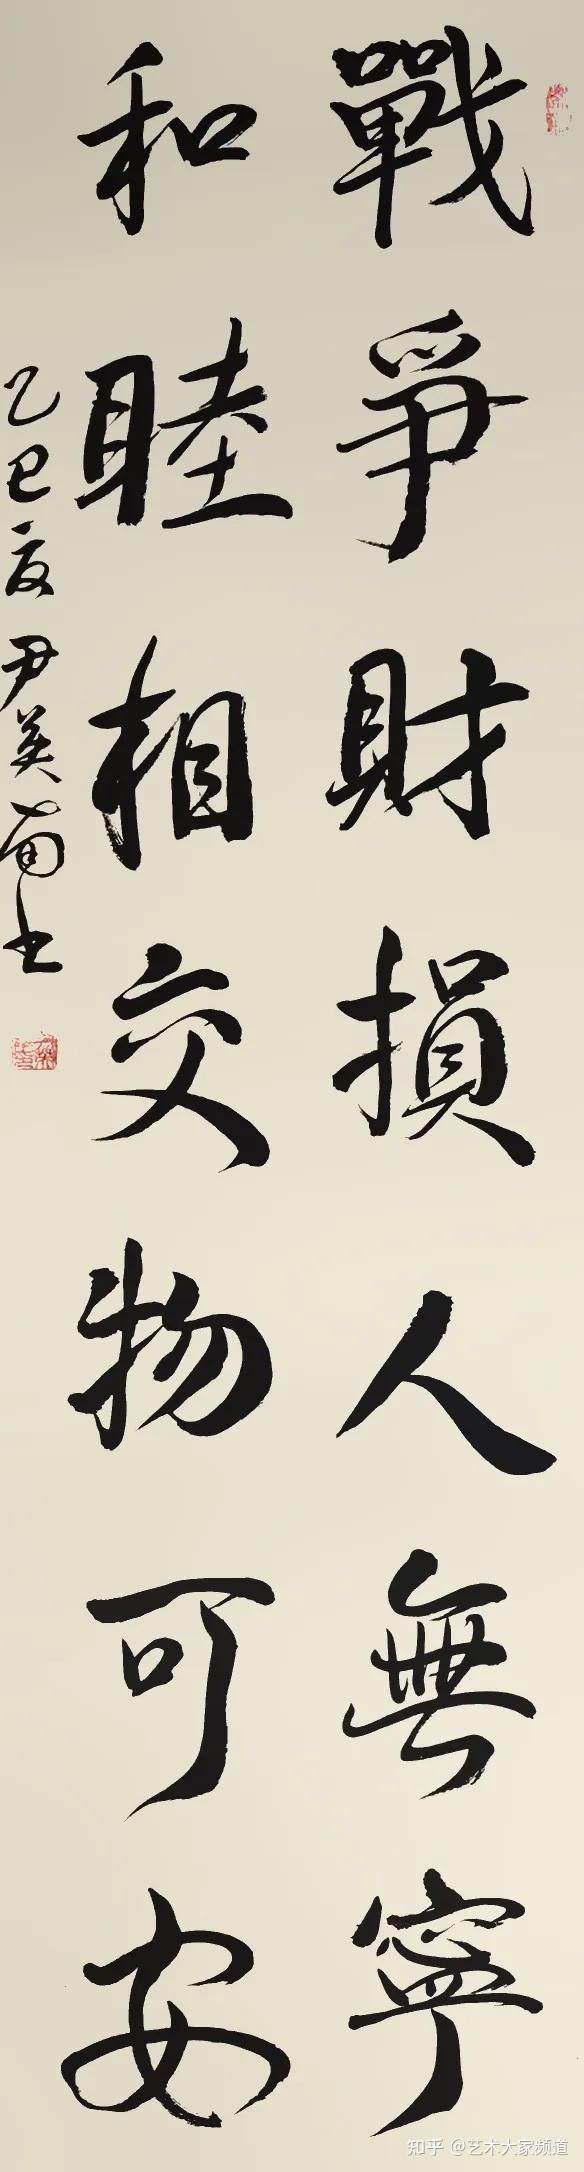 戰爭財損人無寧
和睦相交物可安
乙巳夏尹英
书
知乎 @艺术大家频道